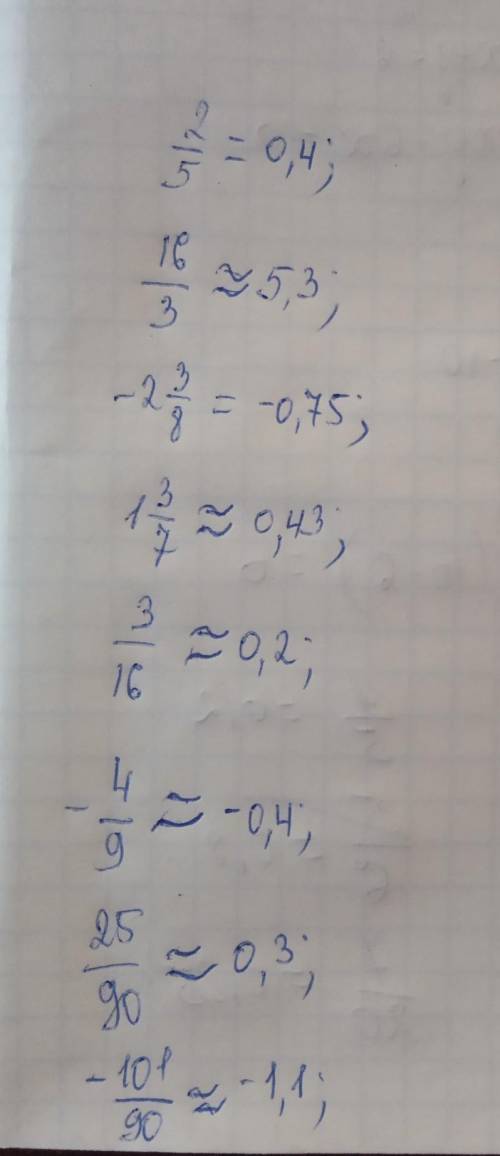 2/5 = 0,4;
16/3 ≈ 5,3;
-2 3/8 = -0,75;
1 3/7 ≈ 0,43;
3/16 ≈ 0,2;
- 4/9 ≈ -0,4;
25/90 ≈ 0,3;
-101/90 ≈ -1,1;